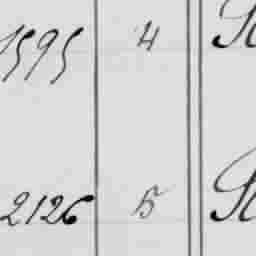 1595 4
2126 5